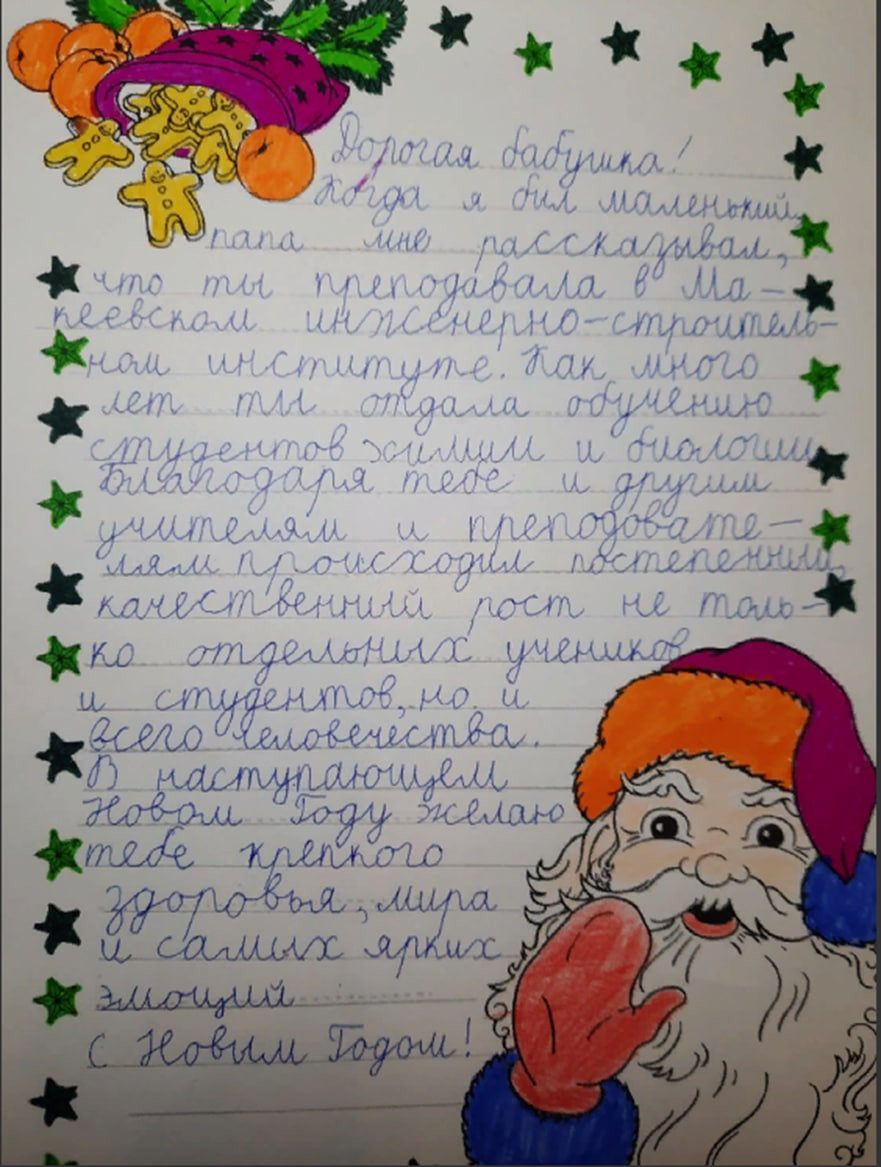 Дорогая бабушка!
Когда я был маленький,
папа мне рассказывал,
что ты преподавала в Ма-
кеевском инженерно-строитель-
ном институте. Как много
лет ты отдала обучению
студентов химии и биологии.
Благодаря тебе и другим
учителям и преподовате-
лям происходил постепенный,
качественный рост не толь-
ко отдельных учеников
и студентов, но и
всего человечества.
В наступающем
Новом Году желаю
тебе крепкого
здоровья, мира
и самых ярких
эмоций
С Новым Годом!